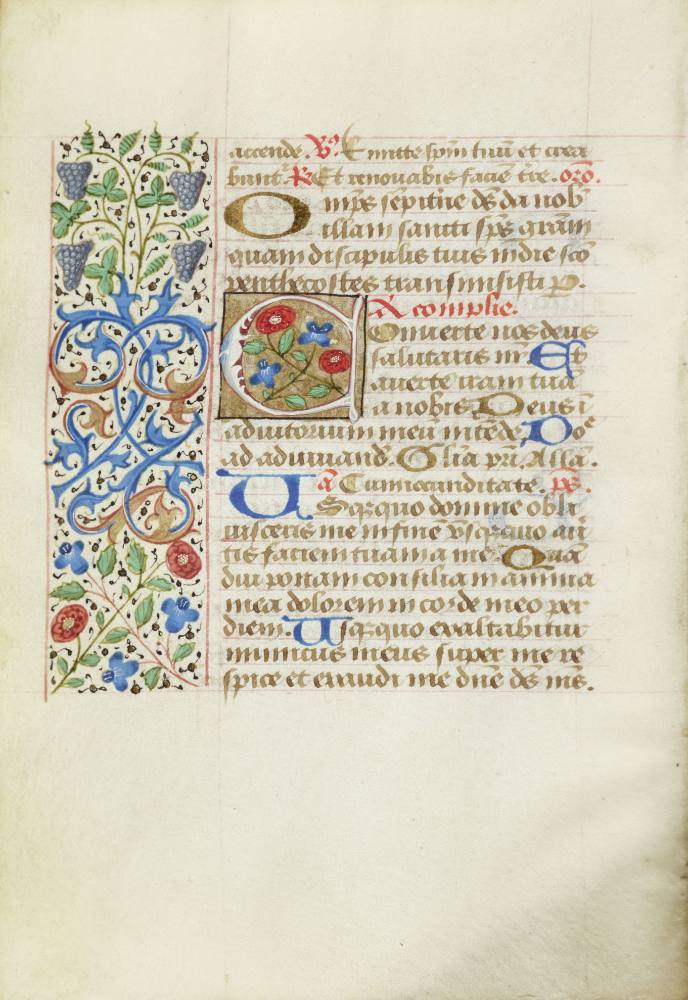 accende. V̊. Emitte sp̄m tuū et crea
bunt̄. R̄ Et renovabis faciē tr̄e. or̄o.
Omp̄s sēpit̄ne ds̄ da nob̄
illam sancti sp̄s gr̄am
quam discipulis tuis indie sc̄o
penthecostes transmisisti p.
A complie.
Converte nos deus
salutaris nr̄. Et
averte iram tuā
a nobis. Deus ī
adiutorium meū intēde. Doe
ad adiuvand. Glia pri. All̄a.
ā Cumiocunditate. ps̄.
Usq̨quo domine obli
visceris me infinē vsq̨quo av̄
tis faciem tuam a me. Quā
diu ponam consilia in anima
mea dolorem in corde meo per
diem. Usq̨quo exaltabitur
inimicus meus super me re
spice et exaudi me dn̄e ds̄ ms̄.